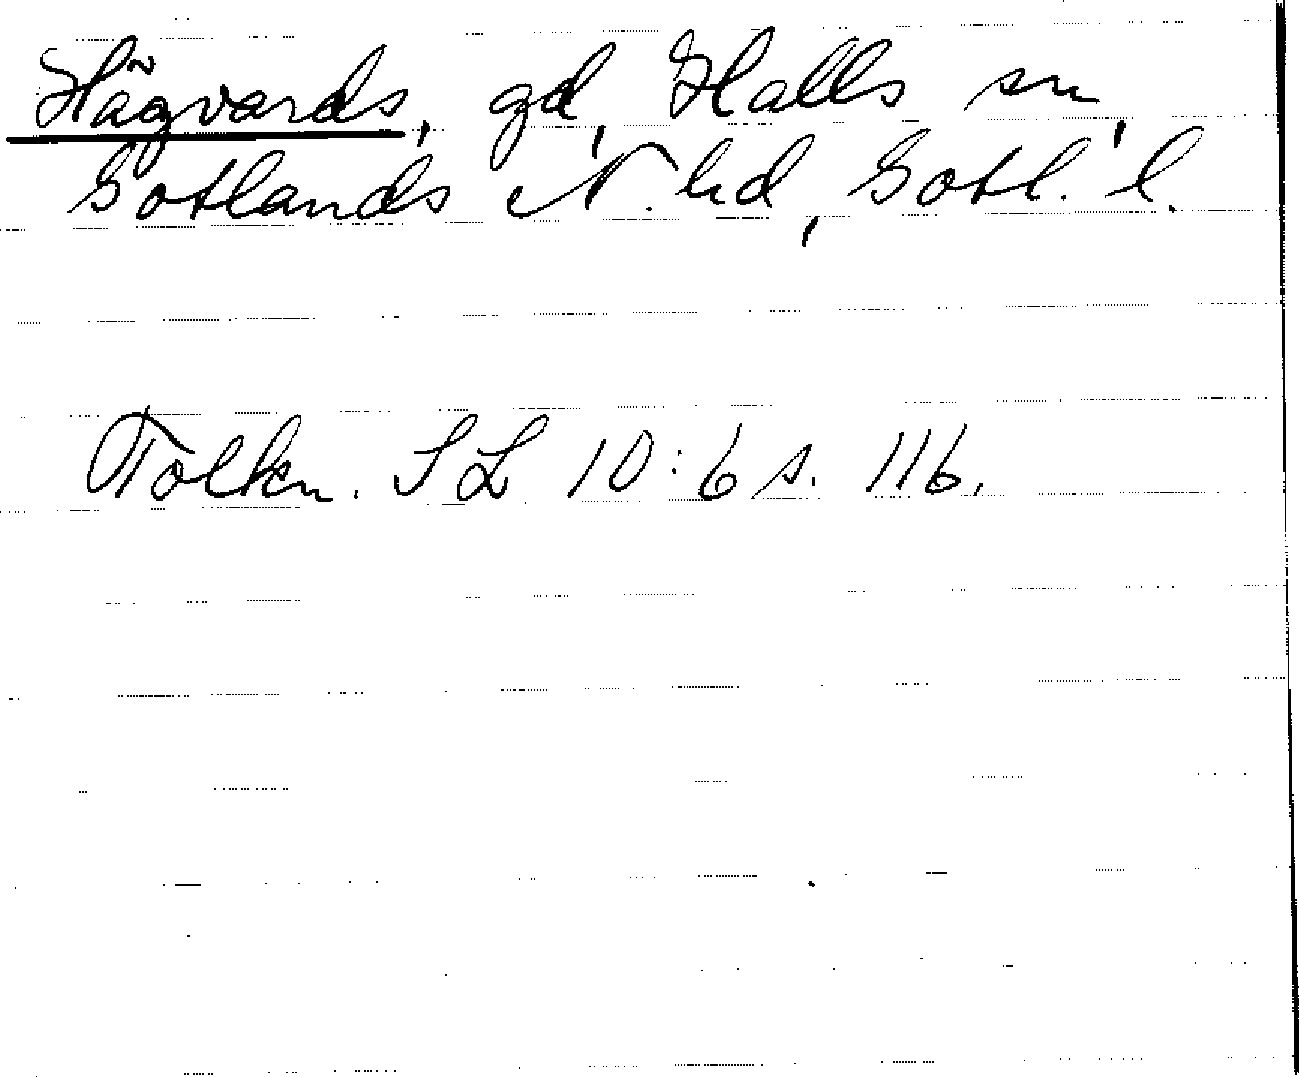 Hägvards, gd, Halls sn,
Gotlands N. hd, Gotl. l.
Tolkn. SL 10:6 s. 116.